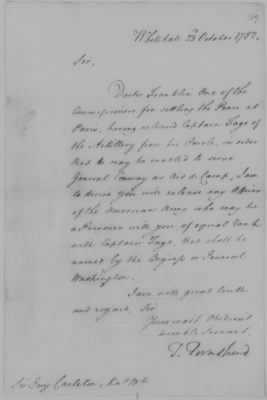 Whitehall 23 October 1782.
Sir.
Doctor Franklin One of the
Commissioners for settling the Peace at
Paris, having released Captain Fage of
the Artillery from his Parole, in order
that He may be enabled to serve
General Conway as Aid de Camp, I am
to desire you will release any Officer
of the American Army who may be
a Prisoner with you, of equal Rank
with Captain Fage, that shall be
named by the Congress or General
Washington.
I am with great truth
and regard, Sir
Your most Obedient
humble Servant.
T. Townshend
Sir Guy Carleton, K.B.